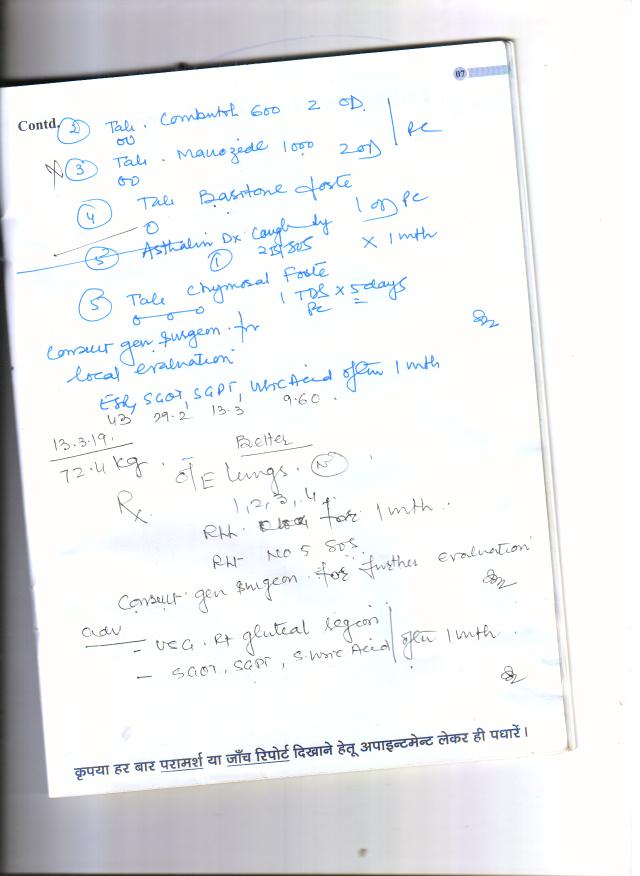 07
Contd. 2) Tab. Combutol 600 2 OD
3) Tab. Macrozide 1000 2 OD PC
4) Tab Basitone forte
1 OD PC
5 Asthalin Dx Cough
1 SOS x 1 mth
5) Tab Chymoral Forte
1 TDS x 5 days
PC
Consult gen surgeon for
local evaluation
ESR, SGOT, SGPT, Uric Acid after 1 mth
43 29.2 13.3 9.60
13.3.19. Better
72.4 kg. O/E lungs. N
Rx 1, 2, 3, 4.
for 1 mth.
No 5 SOS
Consult gen surgeon for further evaluation
adv
- USG. Rt gluteal region
- SGOT, SGPT, S. Uric Acid after 1 mth
कृपया हर बार परामर्श या जाँच रिपोर्ट दिखाने हेतू अपाइन्टमेन्ट लेकर ही पधारें।